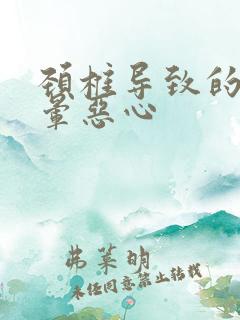 颈柱导致的
晕恶心
弗莱明
未经同意禁止转载